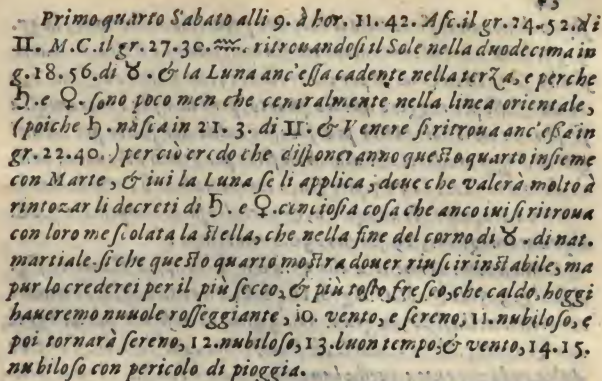 Primo quarto Sabato alli 9. à hor. 11. 42. Asc. il gr. 24. 52. di
♊. M.C. il gr. 27. 30. ♒. ritrouandosi il Sole nella duodecima in
g. 18. 56. di ♉. & la Luna anc'essa cadente nella terza, e perche
♄. e ♀. sono poco men che centralmente nella linea orientale,
(poiche ♄. nasca in 21. 3. di ♊. & Venere si ritroua anc'essa in
gr. 22. 40.) per ciò credo che disponeranno questo quarto insieme
con Marte, & iui la Luna se li applica, deue che valerà molto à
rintozar li decreti di ♄. e ♀. conciosia cosa che anco iui si ritroua
con loro mescolata la stella, che nella fine del corno di ♉. di nat.
martiale si che questo quarto mostra douer riuscir instabile, ma
pur lo crederei per il più secco, & più tosto fresco, che caldo, hoggi
haueremo nuuole rosseggiante, 10. vento, e sereno, 11. nubiloso, e
poi tornarà sereno, 12. nubiloso, 13. buon tempo, & vento, 14. 15.
nubiloso con pericolo di pioggia.